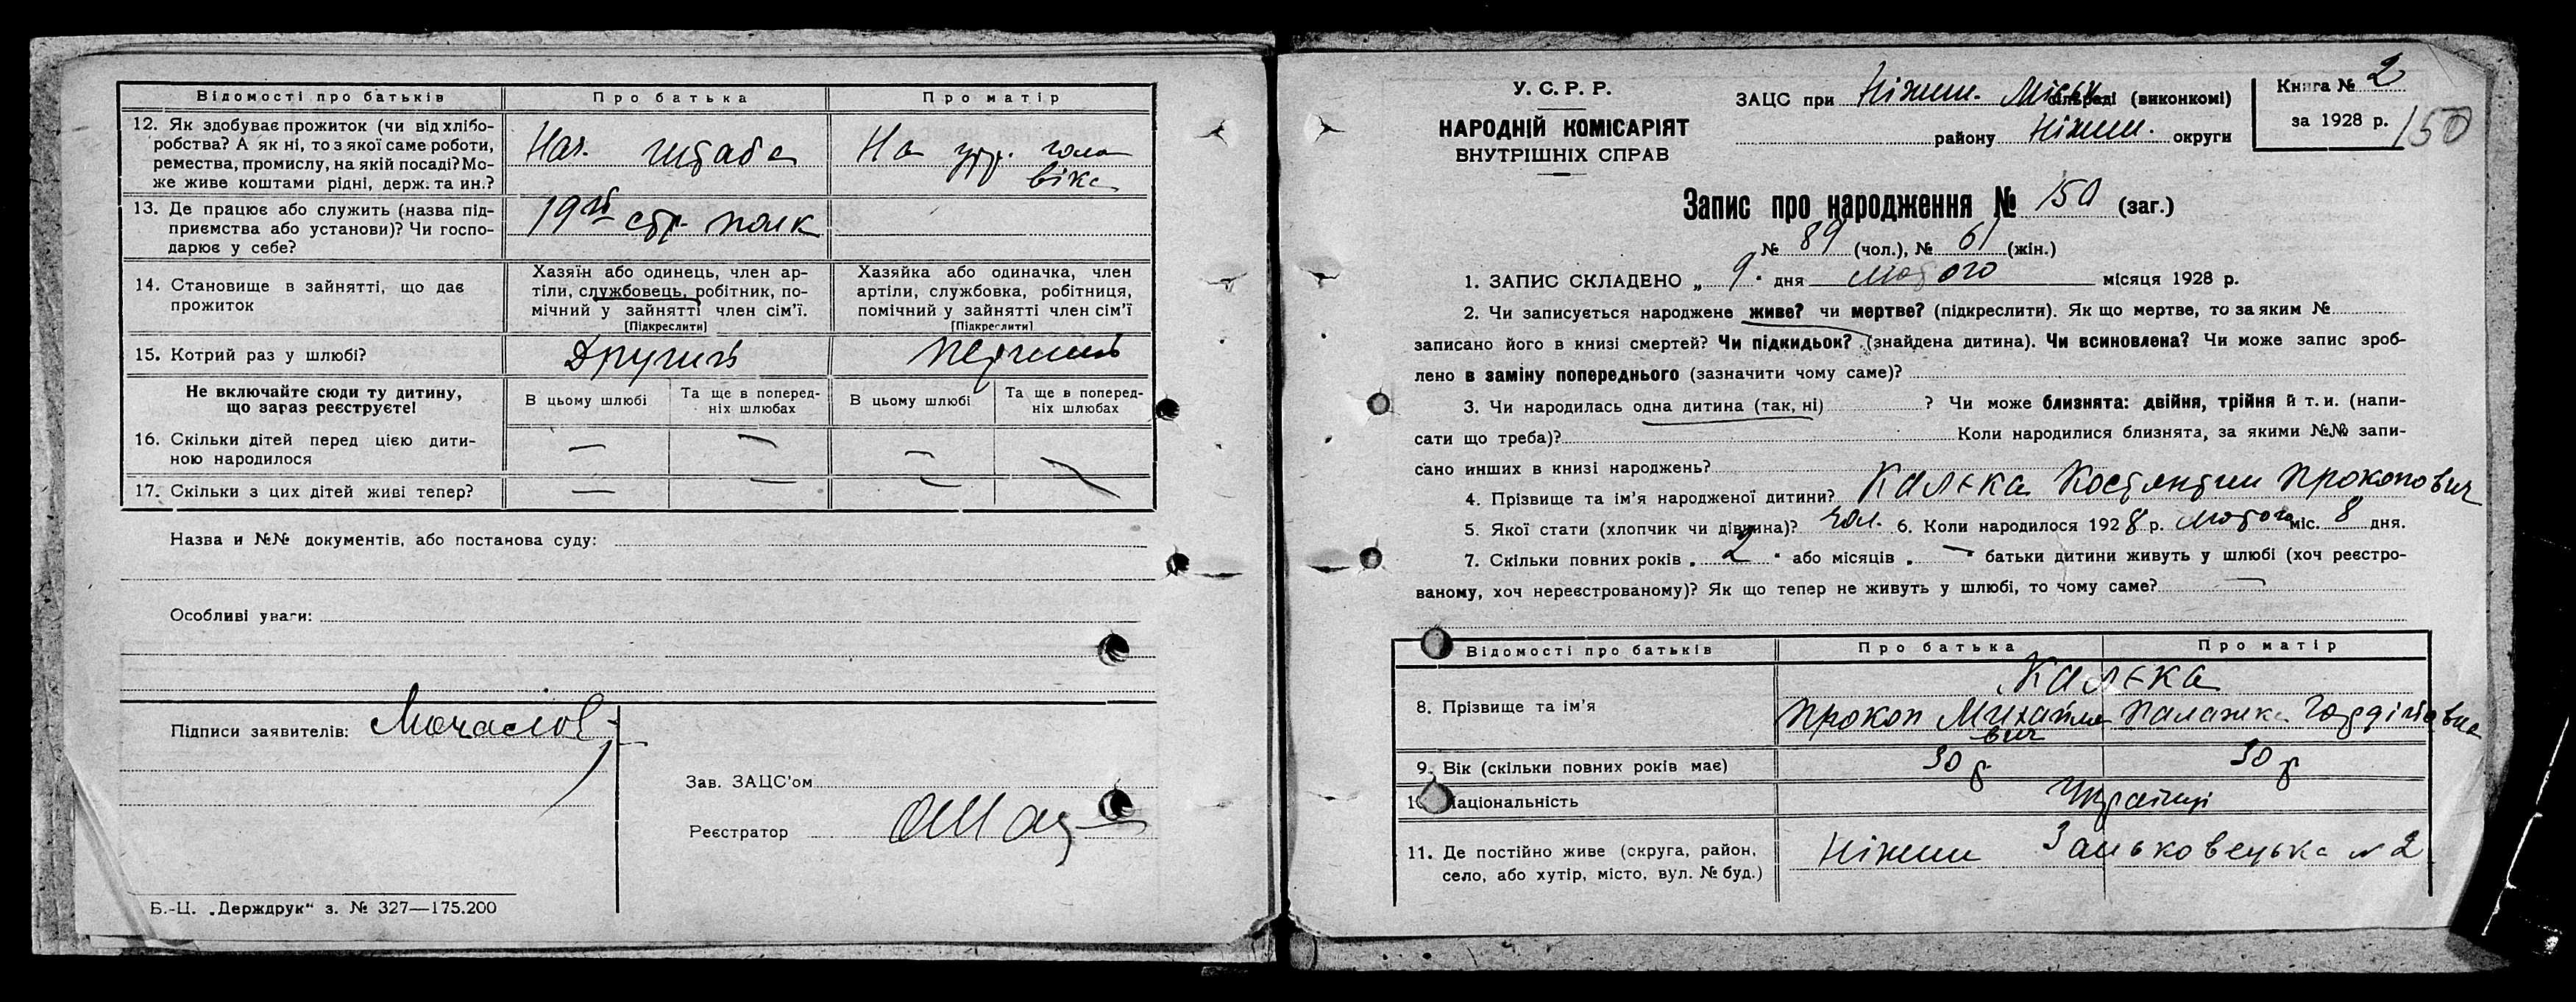 Відомості про батьків Про батька Про матір
12. Як здобуває прожиток (чи від хлібо-
робства? А як ні, то з якої саме роботи,
ремества, промислу, на якій посаді? Мо-
же живе коштами рідні, держ. та ин.?
Нач. штаба
На утр. чоло
віка
13. Де працює або служить (назва під-
приємства або установи)? Чи госпо-
дарює у себе?
19й стр. полк
14. Становище в зайнятті, що дає
прожиток
Хазяїн або одинець, член ар-
тілі, службовець, робітник, по-
мічний у зайнятті член сім'ї.
[Підкреслити]
Хазяйка або одиначка, член
артіли, службовка, робітниця,
помічний у зайнятті член сім'ї
[Підкреслити]
15. Котрий раз у шлюбі? Другий перший
Не включайте сюди ту дитину,
що зараз реєструєте!
В цьому шлюбі
Та ще в поперед-
ніх шлюбах
В цьому шлюбі
Та ще в поперед-
ніх шлюбах
16. Скільки дітей перед цією дити-
ною народилося — — — —
17. Скільки з цих дітей живі тепер? — — — —
Назва и №№ документів, або постанова суду:
Особливі уваги:
Підписи заявителів:
Зав. ЗАЦС'ом
Реєстратор
Б.-Ц. „Держдрук“ з. № 327—175.200
У. С. Р. Р.
НАРОДНІЙ КОМІСАРІЯТ
ВНУТРІШНІХ СПРАВ
ЗАЦС при Ніжин. Міськ раді (виконкомі)
району Ніжин. округи
Книга № 2
за 1928 р.
150
Запис про народження № 150 (заг.)
№ 89 (чол.), № 61 (жін.)
1. ЗАПИС СКЛАДЕНО „ 9 “ дня лютого місяця 1928 р.
2. Чи записується народжене живе? чи мертве? (підкреслити). Як що мертве, то за яким №
записано його в книзі смертей? Чи підкидьок? (знайдена дитина). Чи всиновлена? Чи може запис зроб-
лено в заміну попереднього (зазначити чому саме)?
3. Чи народилась одна дитина (так, ні) ? Чи може близнята: двійня, трійня й т. и. (напи-
сати що треба)? Коли народилися близнята, за якими №№ запи-
сано инших в книзі народжень?
4. Прізвище та ім'я народженої дитини? Калєка Костянтин Прокопович
5. Якої стати (хлопчик чи дівчина)? чол. 6. Коли народилося 1928 р. лютого міс. 8 дня.
7. Скільки повних років „ 2 “ або місяців „ — “ батьки дитини живуть у шлюбі (хоч реєстро-
ваному, хоч нереєстрованому)? Як що тепер не живуть у шлюбі, то чому саме? —
Відомості про батьків Про батька Про матір
Калєка
8. Прізвище та ім'я Прокоп Михайло
вич
Палажка Гордіївна
9. Вік (скільки повних років має) 30 р 30 р
10. Національність Українці
11. Де постійно живе (округа, район,
село, або хутір, місто, вул. № буд.)
Ніжин Заньковецька № 2